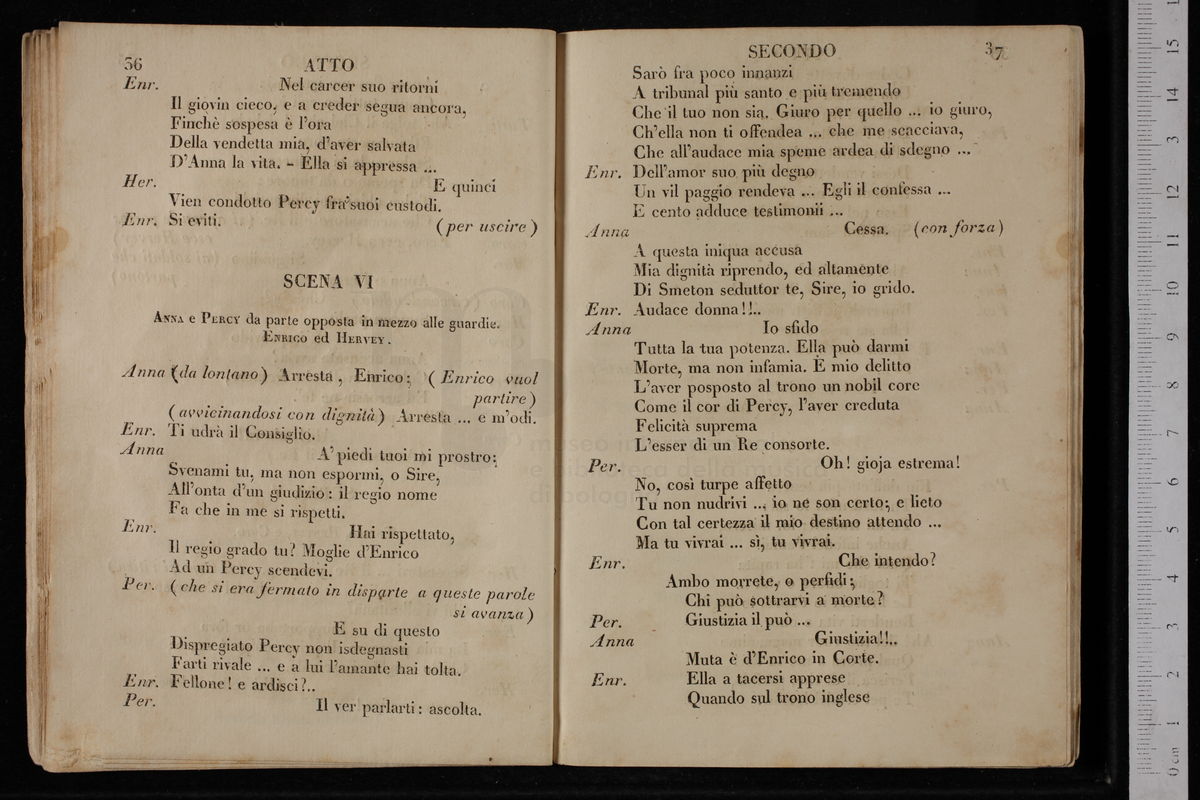 36
ATTO
Enr. Nel carcer suo ritorni
Il giovin cieco, e a creder segua ancora,
Finchè sospesa è l'ora
Della vendetta mia, d'aver salvata
D'Anna la vita. - Ella si appressa ...
Her. E quinci
Vien condotto Percy fra' suoi custodi.
Enr. Si eviti. (per uscire)
SCENA VI
ANNA e PERCY da parte opposta in mezzo alle guardie.
ENRICO ed HERVEY.
Anna (da lontano) Arresta, Enrico; (Enrico vuol
partire)
(avvicinandosi con dignità) Arresta ... e m'odi.
Enr. Ti udrà il Consiglio.
Anna A' piedi tuoi mi prostro;
Svenami tu, ma non espormi, o Sire,
All'onta d'un giudizio: il regio nome
Fa che in me si rispetti.
Enr. Hai rispettato,
Il regio grado tu? Moglie d'Enrico
Ad un Percy scendevi.
Per. (che si era fermato in disparte a queste parole
si avanza)
E su di questo
Dispregiato Percy non isdegnasti
Farti rivale ... e a lui l'amante hai tolta.
Enr. Fellone! e ardisci?..
Per. Il ver parlarti: ascolta.
SECONDO
37
Sarò fra poco innanzi
A tribunal più santo e più tremendo
Che il tuo non sia. Giuro per quello ... io giuro,
Ch'ella non ti offendea ... che me scacciava,
Che all'audace mia speme ardea di sdegno ...
Enr. Dell'amor suo più degno
Un vil paggio rendeva ... Egli il confessa ...
E cento adduce testimonii ...
Anna Cessa. (con forza)
A questa iniqua accusa
Mia dignità riprendo, ed altamente
Di Smeton seduttor te, Sire, io grido.
Enr. Audace donna!!..
Anna Io sfido
Tutta la tua potenza. Ella può darmi
Morte, ma non infamia. È mio delitto
L'aver posposto al trono un nobil core
Come il cor di Percy, l'aver creduta
Felicità suprema
L'esser di un Re consorte.
Per. Oh! gioja estrema!
No, così turpe affetto
Tu non nudrivi ... io ne son certo; e lieto
Con tal certezza il mio destino attendo ...
Ma tu vivrai ... sì, tu vivrai.
Enr. Che intendo?
Ambo morrete, o perfidi;
Chi può sottrarvi a morte?
Per. Giustizia il può ...
Anna Giustizia!!..
Muta è d'Enrico in Corte.
Enr. Ella a tacersi apprese
Quando sul trono inglese